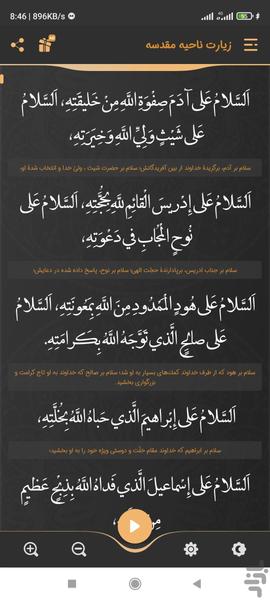 8:46 | 896KB/s
زیارت ناحیه مقدسه
اَلسَّلامُ عَلی آدَمَ صِفْوَةِ اللَّهِ مِنْ خَلیقَتِهِ، اَلسَّلامُ
عَلی شَیْثٍ وَلِیِّ اللَّهِ وَخِیَرَتِهِ،
سلام بر آدم، برگزیدۀ خداوند از بین آفریدگانش؛ سلام بر حضرت شیث ، ولیّ خدا و انتخاب شدۀ او،
اَلسَّلامُ عَلی إِدْریسَ الْقائِمِ للَّهِِ بِحُجَّتِهِ، اَلسَّلامُ عَلی
نُوحٍ الْمُجابِ فی دَعْوَتِهِ،
سلام بر جناب ادریس، برپادارندۀ حجّت الهی؛ سلام بر نوح، پاسخ داده شده در دعایش؛
اَلسَّلامُ عَلی هُودٍ الْمَمْدُودِ مِنَ اللَّهِ بِمَعُونَتِهِ، اَلسَّلامُ
عَلی صالِحٍ الَّذی تَوَّجَهُ اللَّهُ بِكَرامَتِهِ.
سلام بر هود که از طرف خداوند کمک‌های بسیار به او شد؛ سلام بر صالح که خداوند به او تاج کرامت و
بزرگواری بخشید.
اَلسَّلامُ عَلی إِبْراهیمَ الَّذی حَباهُ اللَّهُ بِخُلَّتِهِ،
سلام بر ابراهیم که خداوند مقام خلّت و دوستی ویژه خود را به او بخشید؛
اَلسَّلامُ عَلی إِسْماعیلَ الَّذی فَداهُ اللَّهُ بِذِبْحٍ عَظیمٍ
بازار